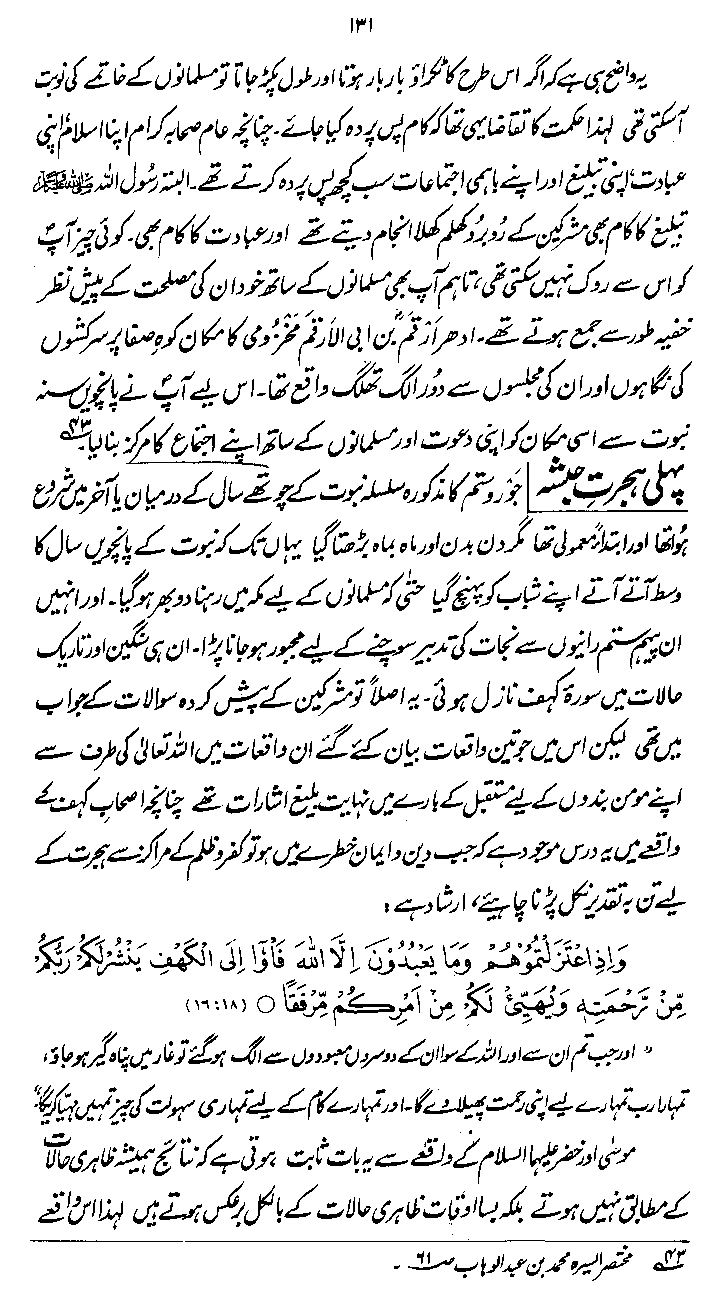 ۱۳۱
یہ واضح ہی ہے کہ اگر اس طرح کا ٹکراؤ بار بار ہوتا اور طول پکڑ جاتا تو مسلمانوں کے خاتمے کی نوبت
آ سکتی تھی لہٰذا حکمت کا تقاضا یہی تھا کہ کام پس پردہ کیا جائے۔ چنانچہ عام صحابہ کرام اپنا اسلام، اپنی
عبادت، اپنی تبلیغ اور اپنے باہمی اجتماعات سب کچھ پس پردہ کرتے تھے۔ البتہ رسول اللہ ﷺ
تبلیغ کا کام بھی مشرکین کے رُوبرُو کھلم کھلا انجام دیتے تھے اور عبادت کا کام بھی۔ کوئی چیز آپؐ
کو اس سے روک نہیں سکتی تھی، تاہم آپ بھی مسلمانوں کے ساتھ خود ان کی مصلحت کے پیش نظر
خفیہ طور سے جمع ہوتے تھے۔ ادھر اَرْقم بنؓ ابی الارقم مَخْزُومی کا مکان کوہِ صفا پر سرکشوں
کی نگاہوں اور ان کی مجلسوں سے دُور الگ تھلگ واقع تھا۔ اس لیے آپؐ نے پانچویں سنہ
نبوت سے اسی مکان کو اپنی دعوت اور مسلمانوں کے ساتھ اپنے اجتماع کا مرکز بنا لیا۔ ۴۳؎
پہلی ہجرتِ حبشہ جَور و ستم کا مذکورہ سلسلہ نبوت کے چوتھے سال کے درمیان یا آخر میں شروع
ہُوا تھا اور ابتداءً معمولی تھا مگر دن بدن اور ماہ بماہ بڑھتا گیا یہاں تک کہ نبوت کے پانچویں سال کا
وسط آتے آتے اپنے شباب کو پہنچ گیا حتیٰ کہ مسلمانوں کے لیے مکہ میں رہنا دوبھر ہو گیا۔ اور انہیں
ان پیہم ستم رانیوں سے نجات کی تدبیر سوچنے کے لیے مجبور ہو جانا پڑا۔ ان ہی سنگین اور تاریک
حالات میں سورۂ کہف نازل ہوئی۔ یہ اصلاً تو مشرکین کے پیش کردہ سوالات کے جواب
میں تھی لیکن اس میں جو تین واقعات بیان کئے گئے ان واقعات میں اللہ تعالیٰ کی طرف سے
اپنے مومن بندوں کے لیے مستقبل کے بارے میں نہایت بلیغ اشارات تھے چنانچہ اصحابِ کہف کے
واقعے میں یہ درس موجود ہے کہ جب دین و ایمان خطرے میں ہو تو کفر و ظلم کے مراکز سے ہجرت کے
لیے تن بہ تقدیر نکل پڑنا چاہیئے، ارشاد ہے :
وَاِذِ اعْتَزَلْتُمُوْهُمْ وَمَا يَعْبُدُوْنَ اِلَّا اللّٰهَ فَأْوٗٓا اِلَى الْكَهْفِ يَنْشُرْ لَكُمْ رَبُّكُمْ
مِّنْ رَّحْمَتِهٖ وَيُهَيِّئْ لَكُمْ مِّنْ اَمْرِكُمْ مِّرْفَقًا ○ (۱۶:۱۸)
” اور جب تم ان سے اور اللہ کے سوا ان کے دوسرے معبودوں سے الگ ہو گئے تو غار میں پناہ گیر ہو جاؤ،
تمہارا رب تمہارے لیے اپنی رحمت پھیلا دے گا۔ اور تمہارے کام کے لیے تمہاری سہولت کی چیز تمہیں مہیا کریگا۔“
موسٰی اور خضر علیہما السلام کے واقعے سے یہ بات ثابت ہوتی ہے کہ نتائج ہمیشہ ظاہری حالات
کے مطابق نہیں ہوتے بلکہ بسا اوقات ظاہری حالات کے بالکل برعکس ہوتے ہیں لہٰذا اس واقعے
۴۳؎ مختصر السیرہ محمد بن عبد الوہاب ص ۶۱ ۔